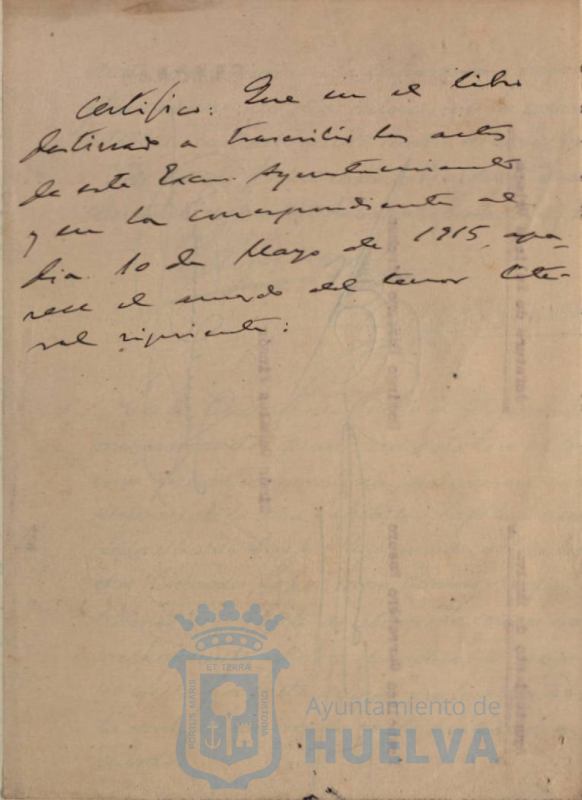 Certifico: Que en el libro
destinado a trascribir las actas
de este Excmo. Ayuntamiento
y en la correspondiente al
dia 10 de Mayo de 1915, apa-
rece el acuerdo del tenor lite-
ral siguiente:
ET TERRA
PORTUS MARIS
CUSTODIA
Ayuntamiento de
HUELVA